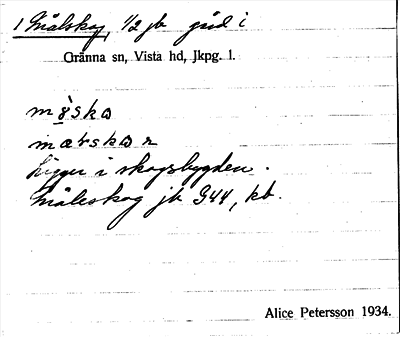 1 Målskog, 1/2 jb gård i
Gränna sn, Vista hd, Jkpg. l.
ligger i skogsbygden.
Måleskog jb 944, kb.
Alice Petersson 1934.